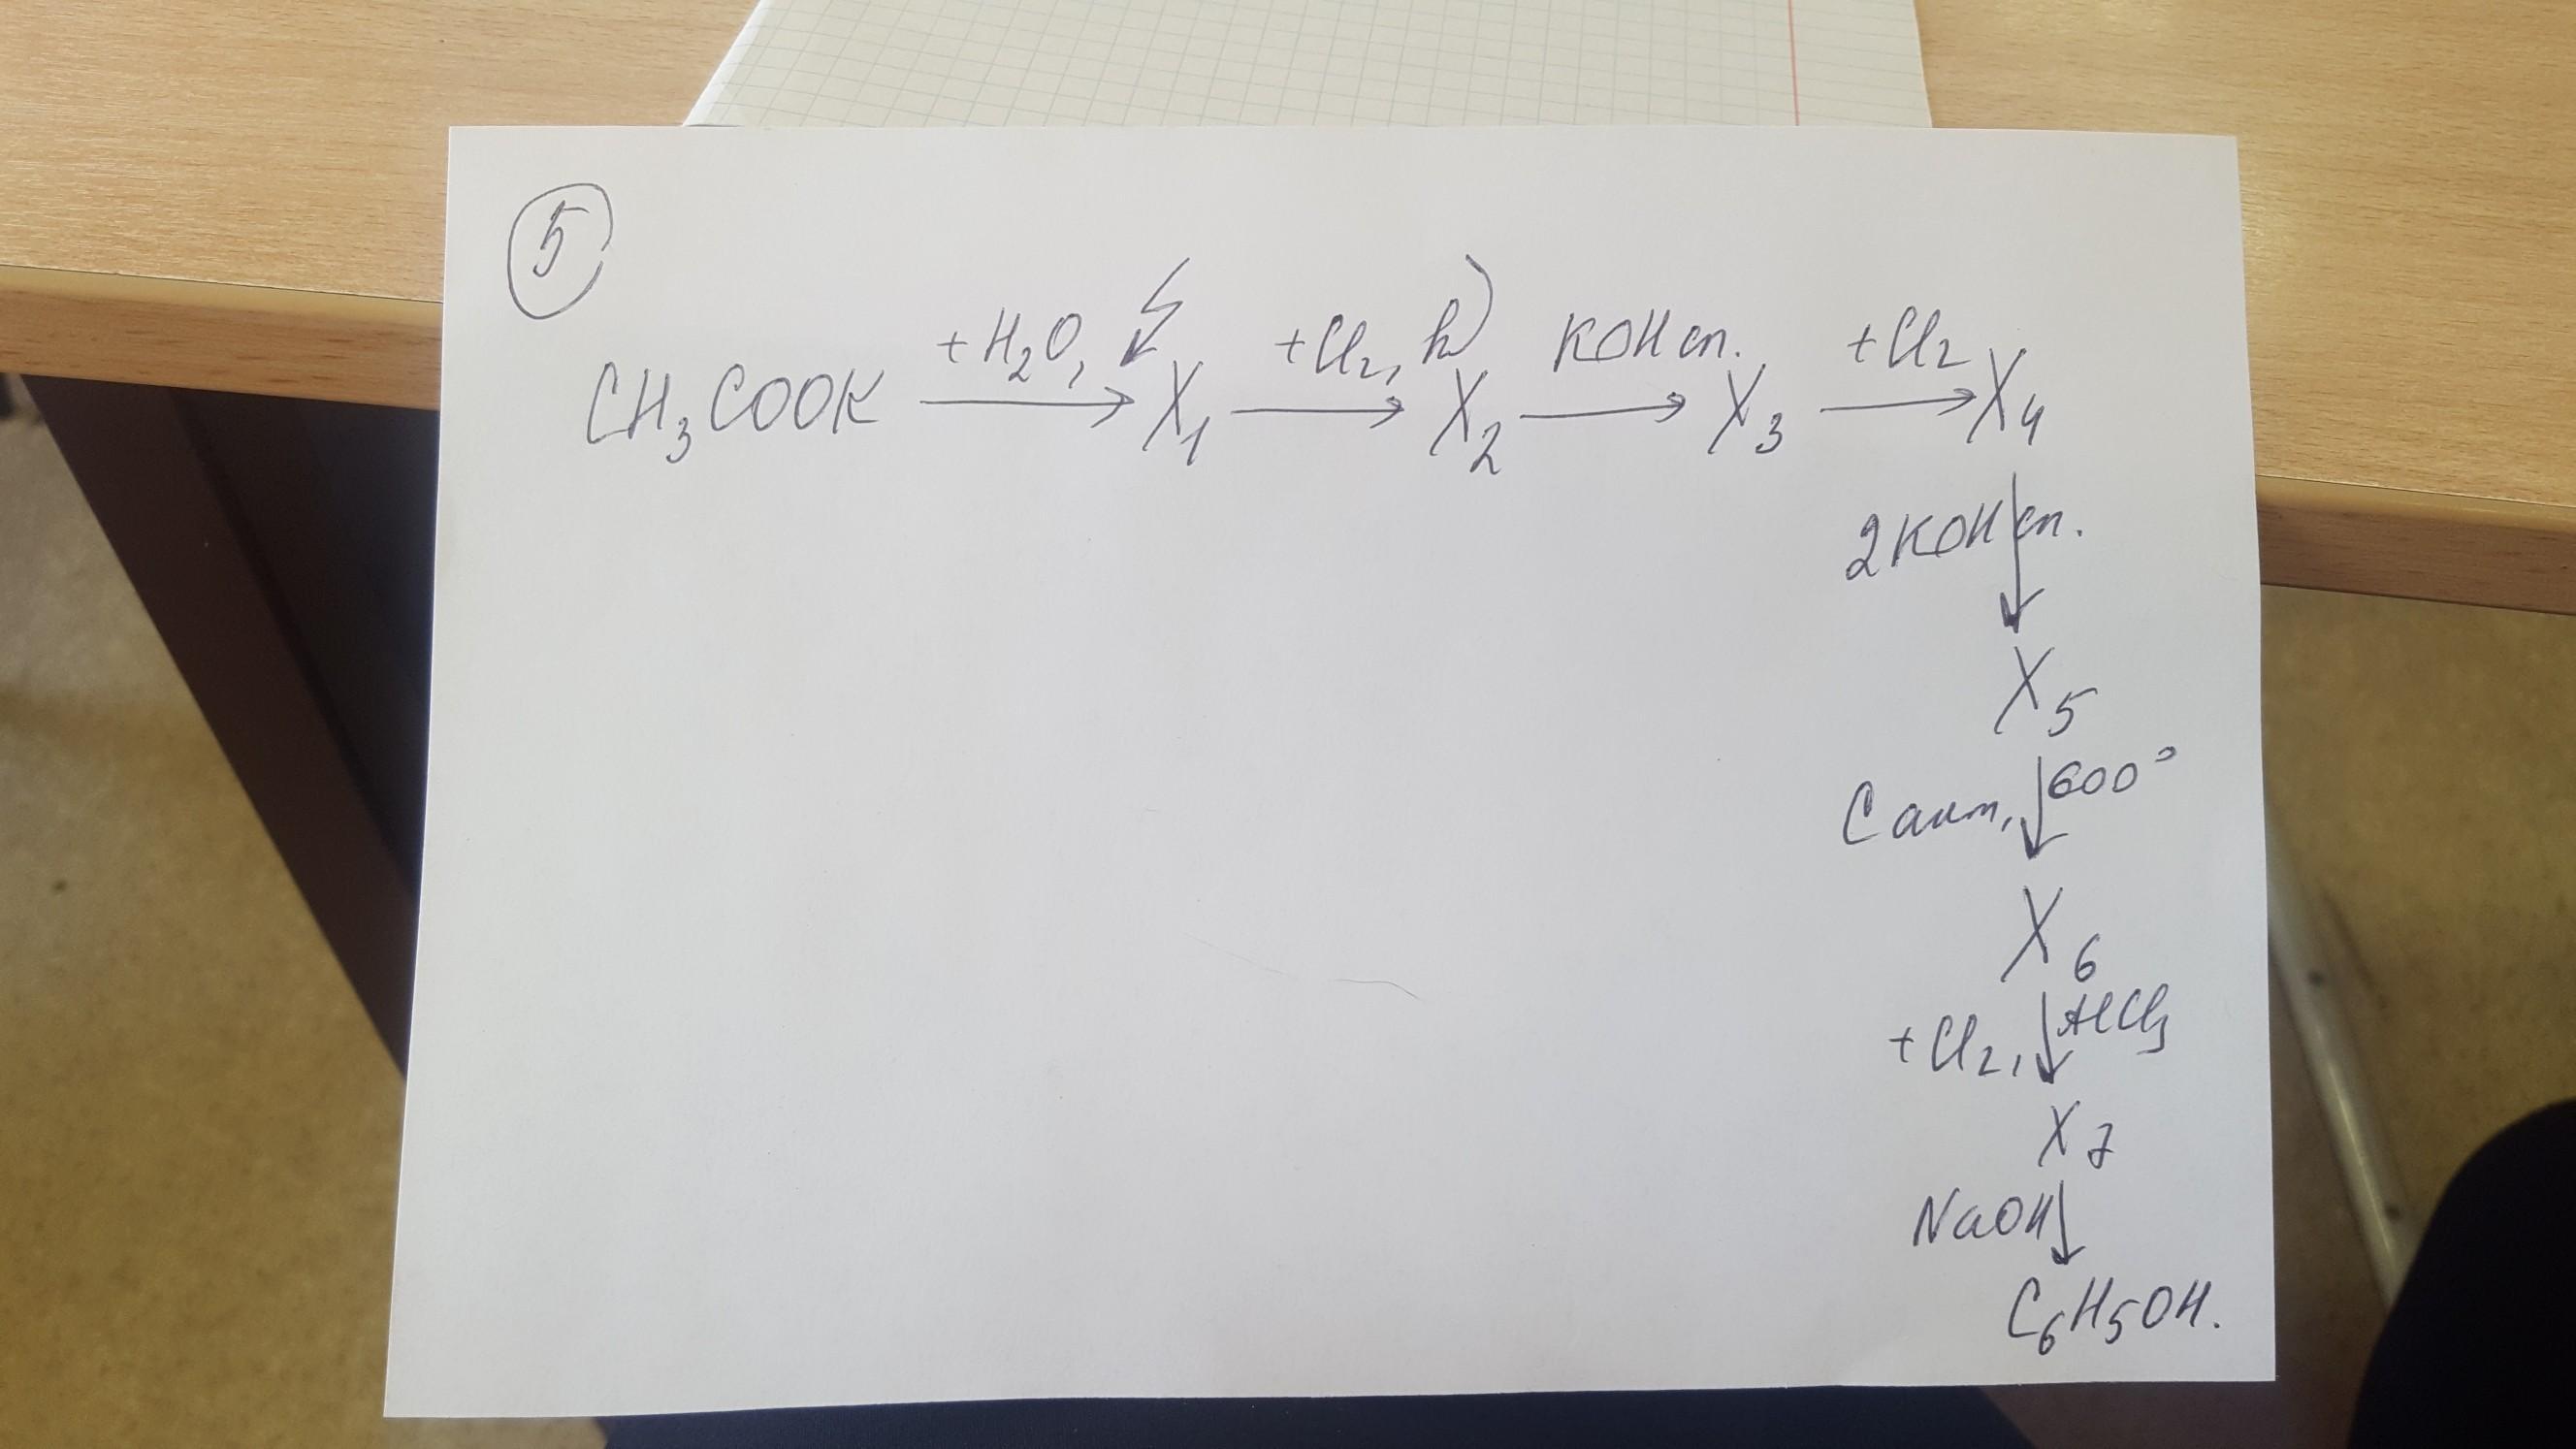 5
CH₃COOK +H₂O, → X₁ +Cl₂, hν → X₂ KOH сп. → X₃ +Cl₂ → X₄
2KOH сп. ↓
X₅
C акт, ↓ 600°
X₆
+Cl₂, ↓ AlCl₃
X₇
NaOH ↓
C₆H₅OH.